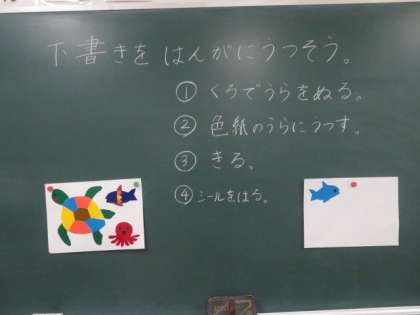 下書きをはんがにうつそう。
①くろでうらをぬる。
②色紙のうらにうつす。
③きる。
④シールをはる。